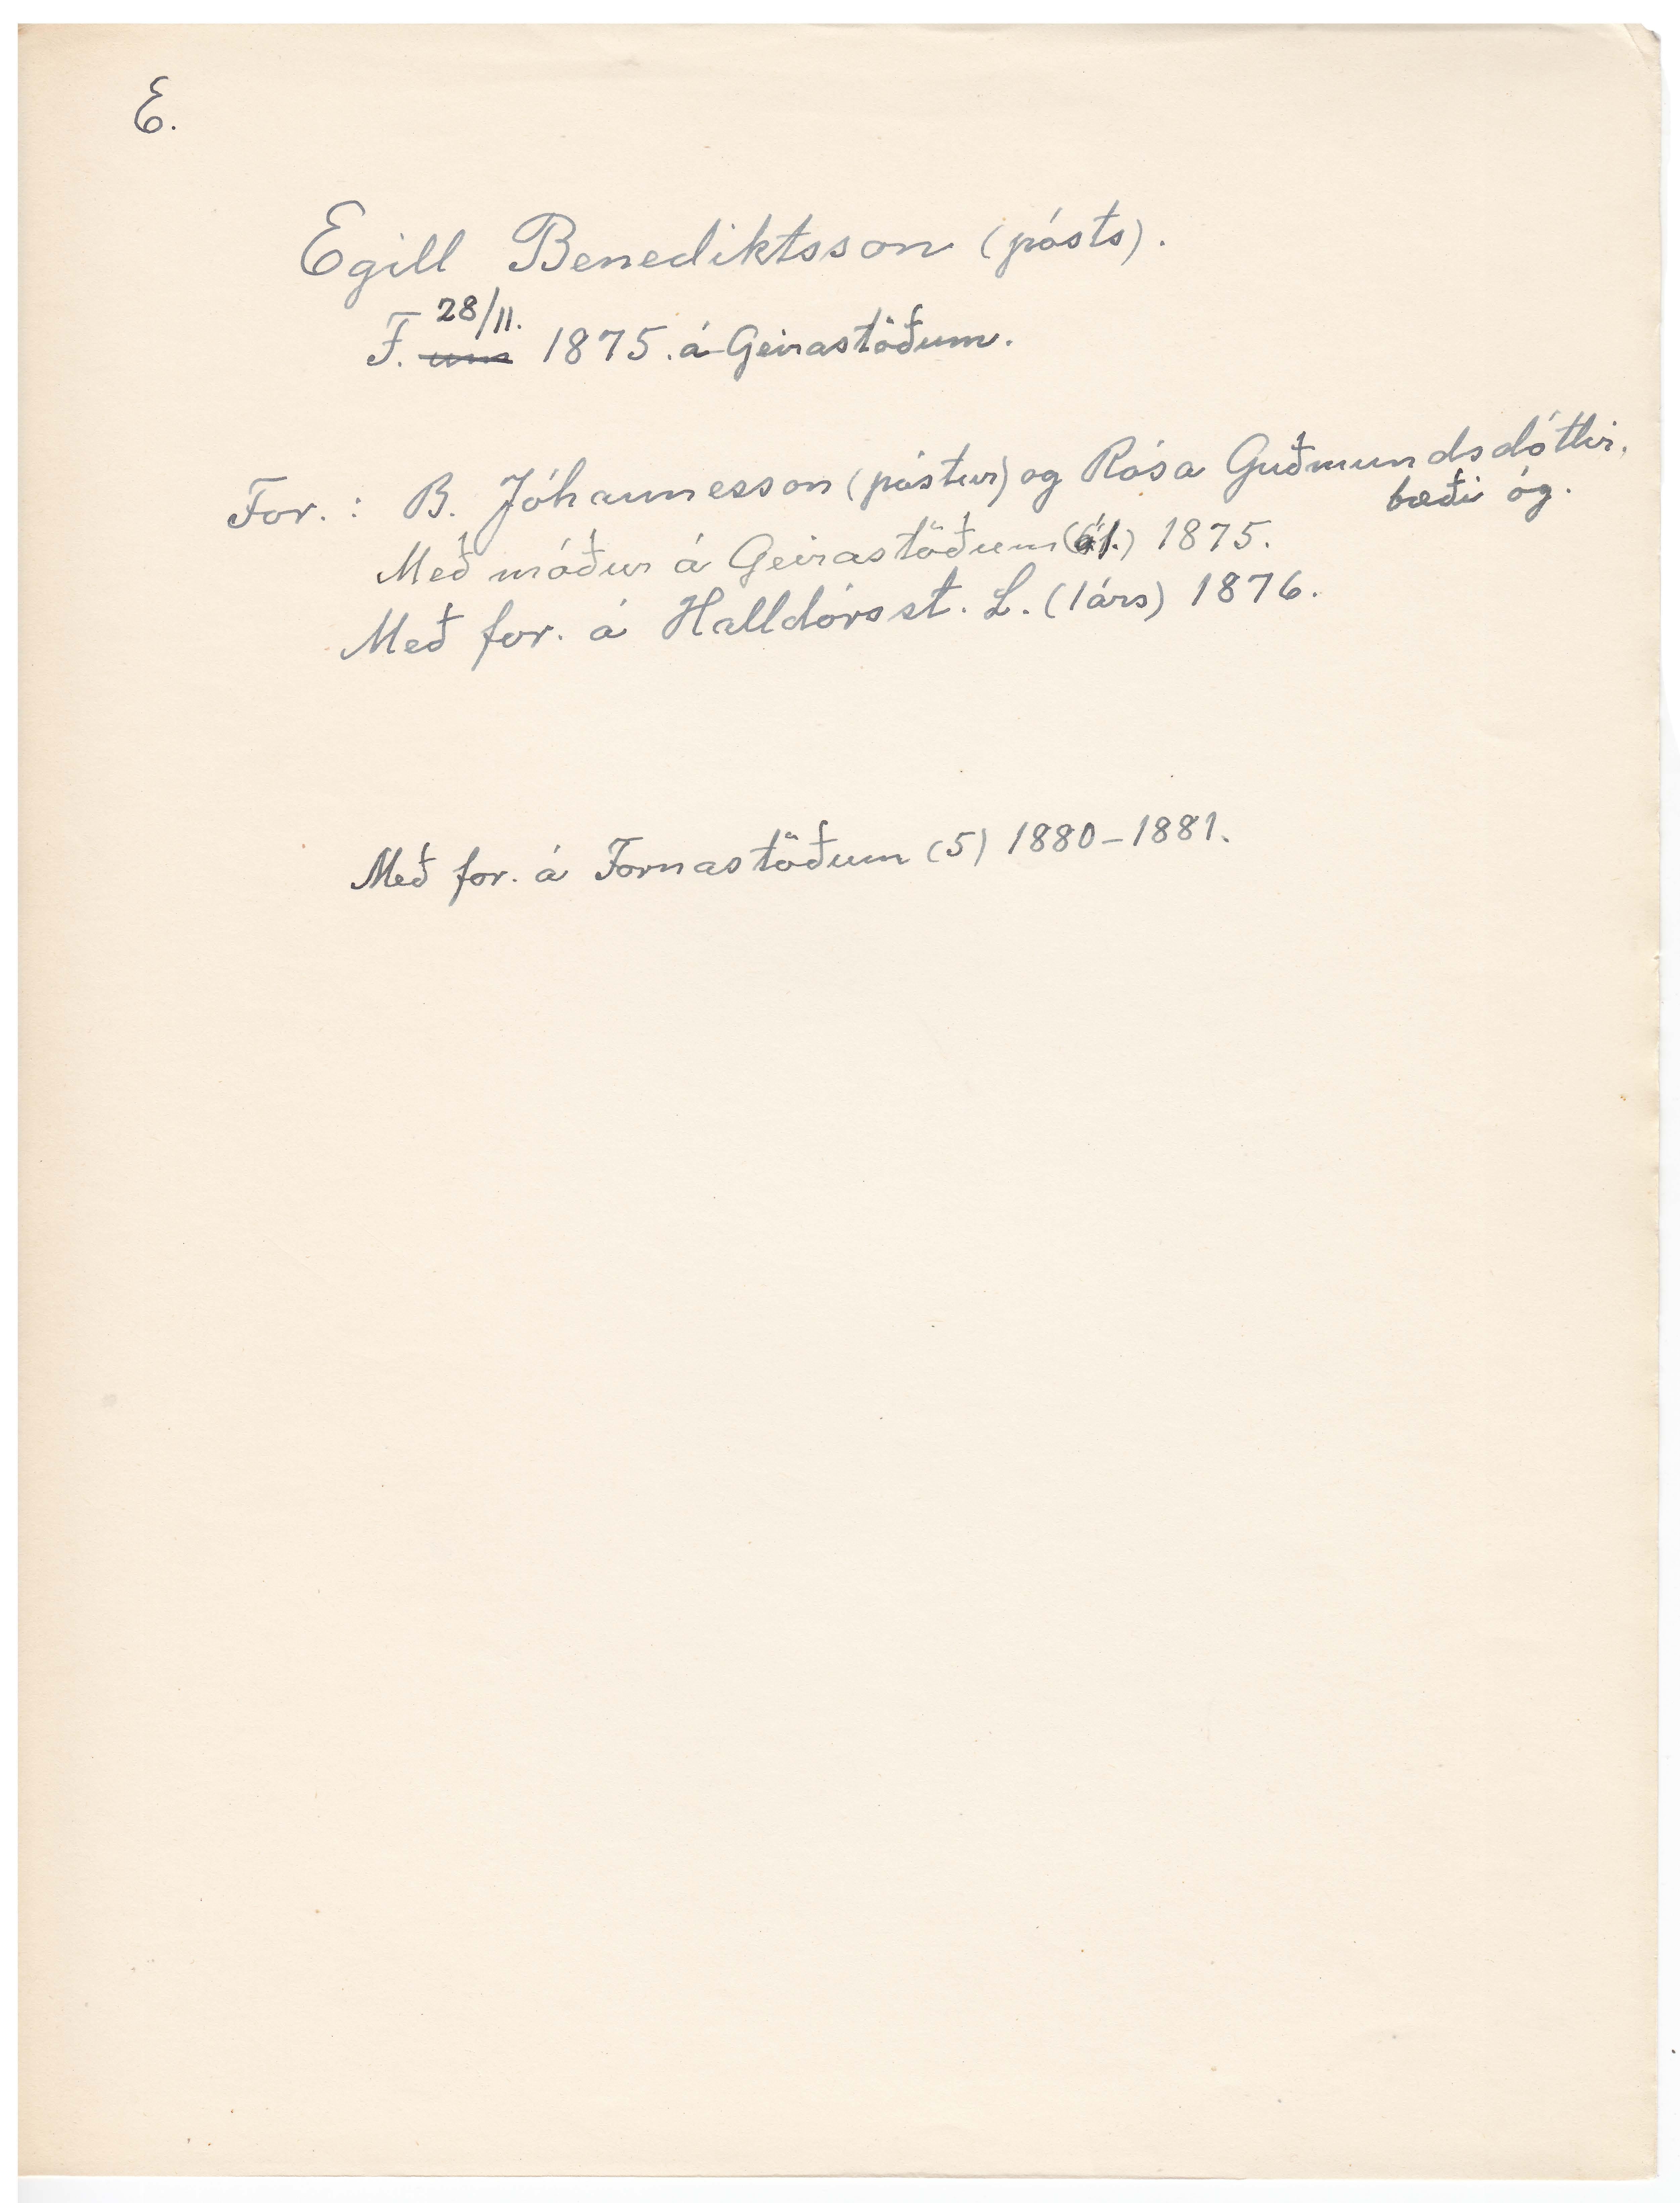 E.
Egill Benediktsson (pósts).
28/11.
F. um 1875. á Geirastöðum.
For.: B. Jóhannesson (póstur) og Rósa Guðmundsdóttir,
bæði óg.
Með móður á Geirastöðum 1875.
Með for. á Halldórsst. L. (1árs) 1876.
Með for. á Fornastöðum (5) 1880-1881.